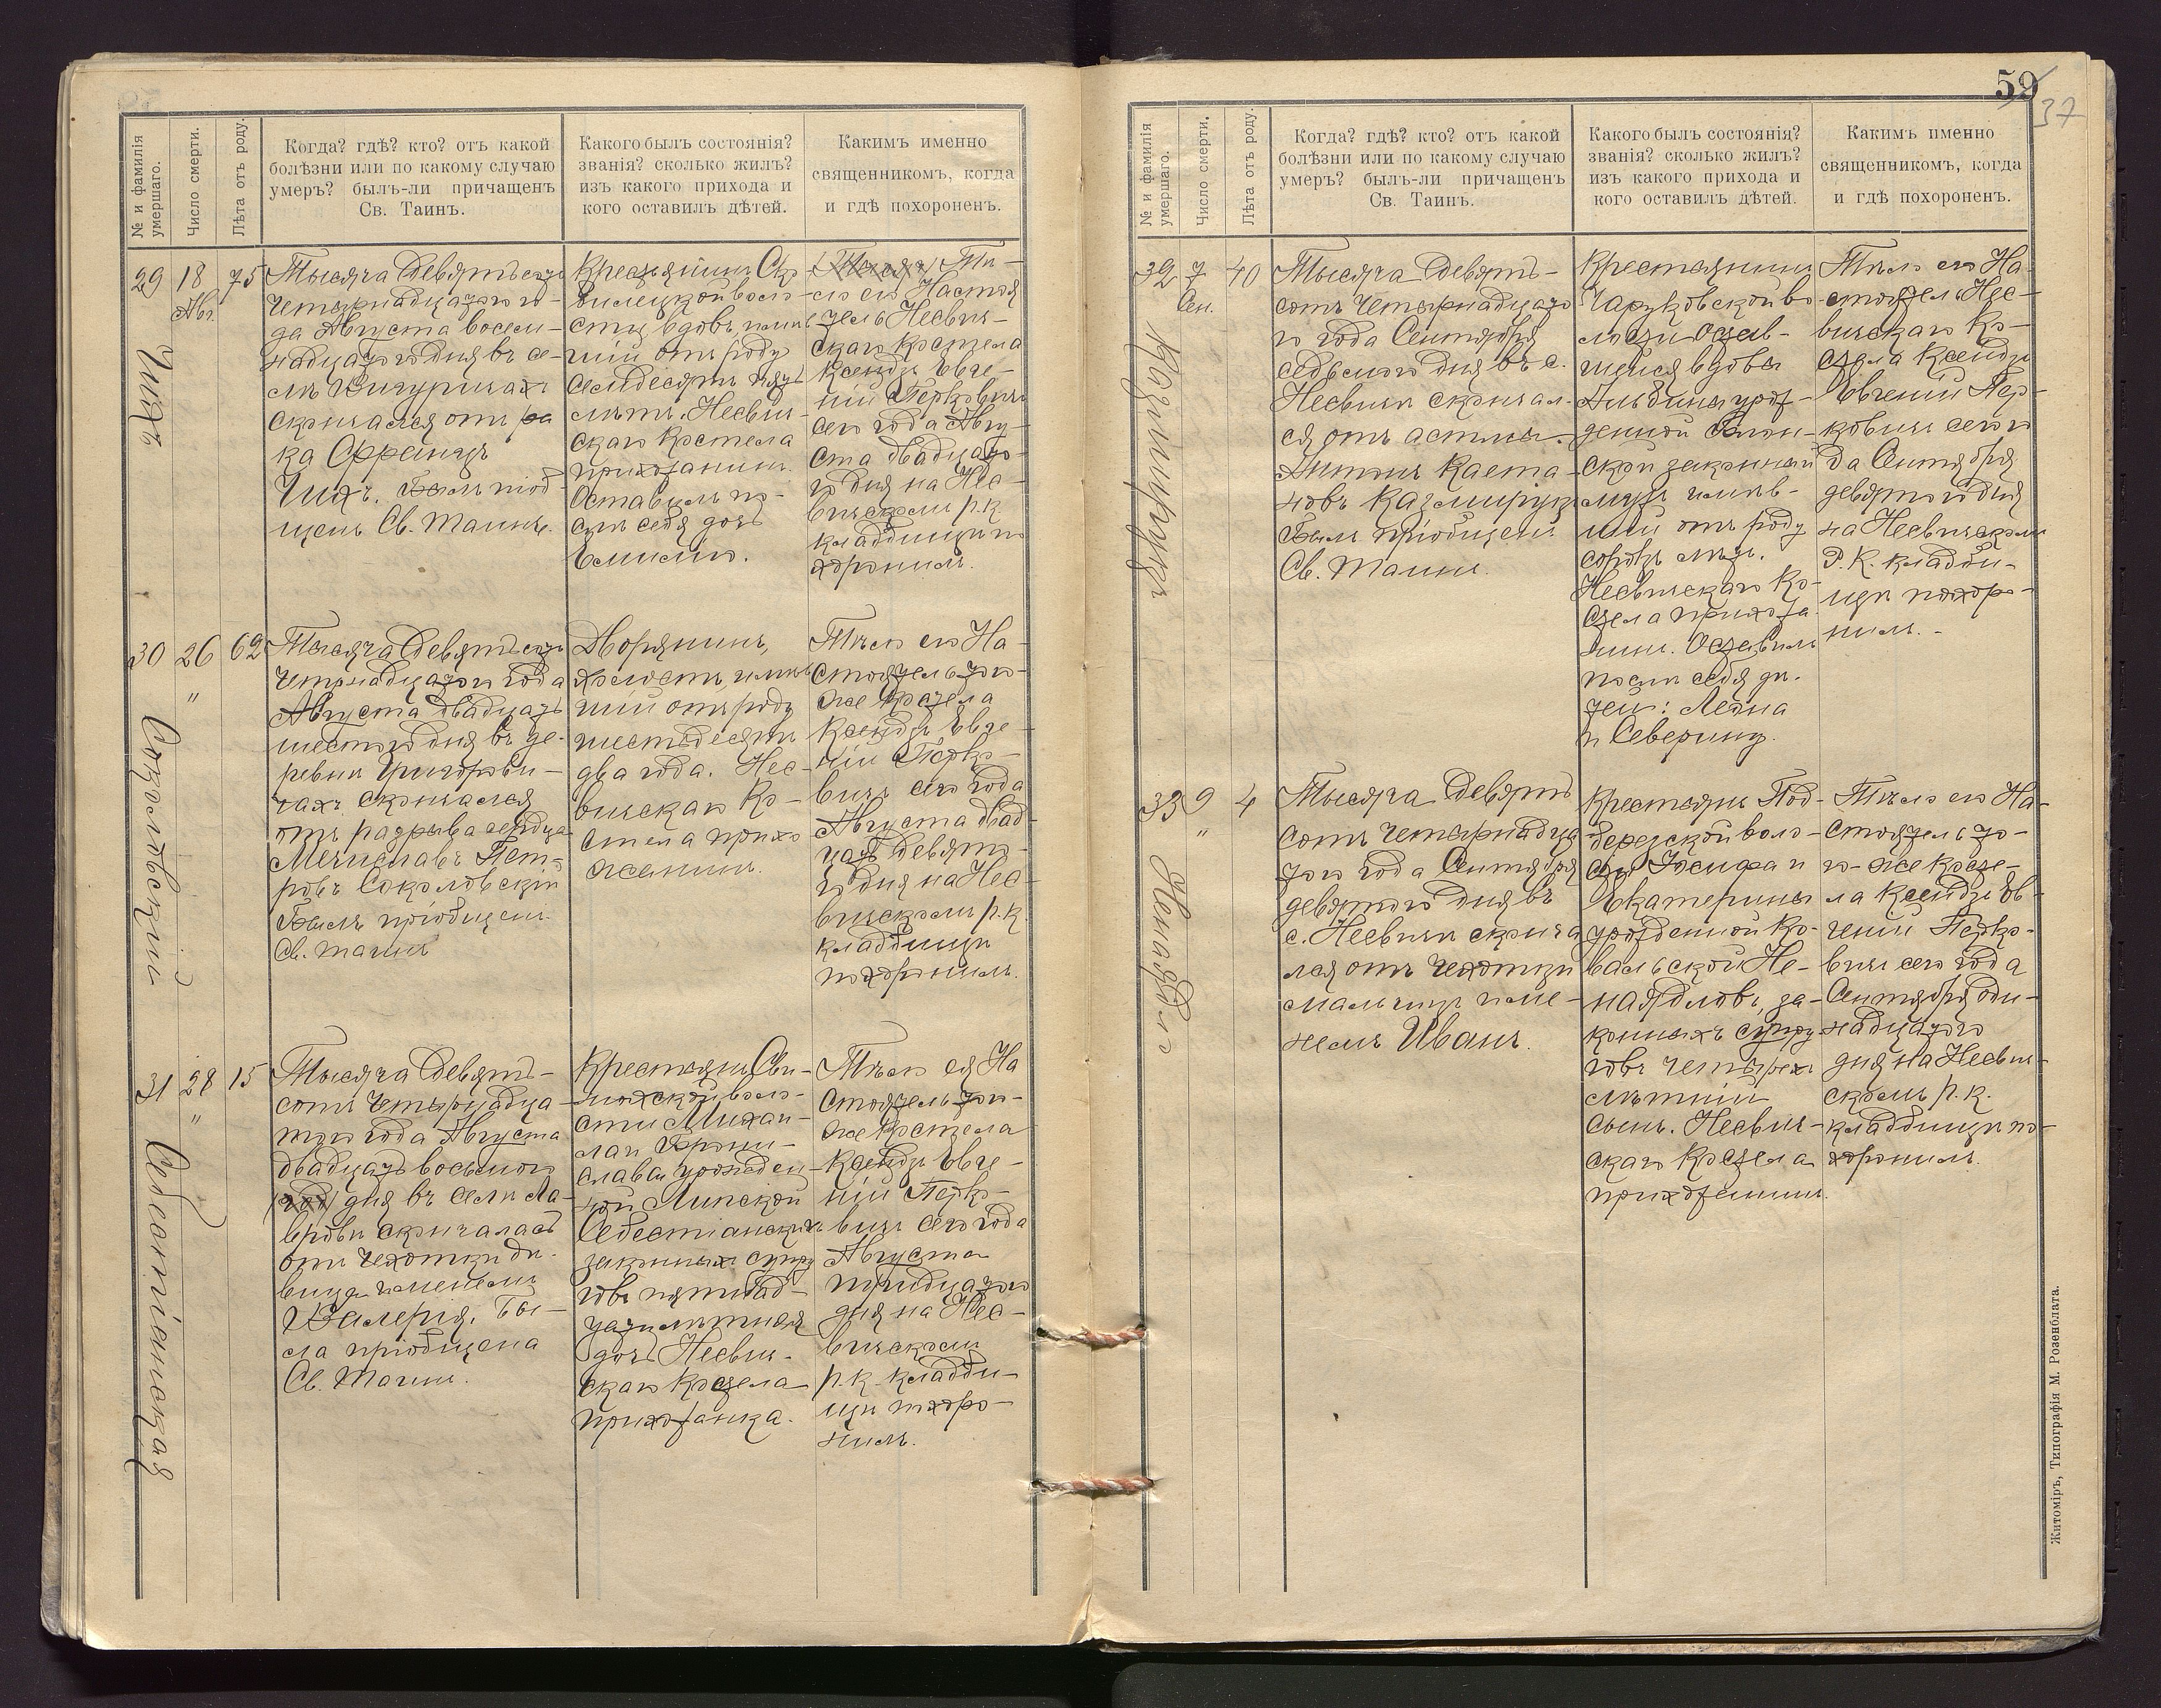 № и фамилія умершаго.
Число смерти.
Лѣта отъ роду.
Когда? гдѣ? кто? отъ какой
болѣзни или по какому случаю
умеръ? былъ-ли причащенъ
Св. Таинъ.
Какого былъ состоянія?
званія? сколько жилъ?
изъ какого прихода и
кого оставилъ дѣтей.
Каким именно
священникомъ, когда
и гдѣ похороненъ.
29
Чихъ
18
Авг.
75
Тысяча девятьсотъ
четырнадцатаго го-
да Августа восем-
надцатого дня въ се-
лѣ
скончался отъ ра
ка Францъ
Чихъ. Былъ пріоб-
щенъ Св. Таинъ.
Крестьянинъ
волос-
сти, вдовъ, имѣв
шій отъ роду
семдесять пять
лѣтъ. Несвич-
скаго Костела
прихожанинъ.
Оставилъ по-
слѣ себя дочь
Емилію.
Тѣ-
ло его Настоя
тель Несвич-
скаго Костела
Ксендзъ Евге-
ній Перковичъ
сего года Авгу-
ста двадцато-
го дня на Нес-
вичскомъ р.к.
кладбищѣ по
хоронилъ.
30
Соколовскій
26
"
62
Тысяча девятьсотъ
четрнадцатого года
Августа двадцать
шестого дня въ де-
ревни Григорови-
чахъ скончался
отъ разрыва сердца
Мечиславъ Пет-
ровъ Соколовскій
Былъ пріобщенъ
Св. Таинъ
Дворянинъ,
холостъ, имѣв
шій отъ роду
шестьдесятъ
два года. Нес-
вичскаго Ко-
стела прихо
жанинъ.
Тѣло его На-
стоятель того-
же Костела
Ксендзъ Евге-
ній Перко-
вичъ сего года
Августа двад-
цать девято-
го дня на Нес-
вичскомъ р.к.
кладбищѣ
похоронилъ.
31
Себестіанская
28
"
15
Тысяча девять-
сотъ четырнадца-
того года Августа
двадцать восьмого
(год) дня въ селѣ Ла-
вровѣ скончалась
отъ чехотки дѣ-
вица именемъ
Валерія. Бы-
ла пріобщена
Св. Таинъ.
Крестьянъ Сви-
нюхской воло-
сти Михаи-
ла и Брони-
славы урожден-
ной Липской
Себестіанскихъ
законныхъ супру
говъ пятнад-
цатилѣтняя
дочь Несвич-
скаго Костела
прихожанка.
Тѣло ея На
стоятель того-
же Костела
Ксендзъ Евге-
ній Перко-
вичъ сего года
Августа
тридцатого
дня на Нес-
вичскомъ
р.к. кладби-
щѣ похоро-
нилъ.
59
37
№ и фамилія умершаго.
Число смерти.
Лѣта отъ роду.
Когда? гдѣ? кто? отъ какой
болѣзни или по какому случаю
умеръ? былъ-ли причащенъ
Св. Таинъ.
Какого былъ состоянія?
званія? сколько жилъ?
изъ какого прихода и
кого оставилъ дѣтей.
Каким именно
священникомъ, когда
и гдѣ похороненъ.
32
Казмирукъ
7
Сен.
40
Тысяча девять-
сотъ четырнадцато
го года Сентября
седьмого дня въ с.
Несвичи скончал-
ся отъ астмы.
Антонъ Каета-
новъ Казмирукъ
Былъ пріобщенъ
Св. Таинъ.
Крестьянинъ
Чаруковской во-
лости остав-
шейся вдовы
Альбины урож-
денной
ской законный
мужъ имѣв-
шій отъ роду
сорокъ лѣтъ.
Несвичскаго Ко-
стела прихожа
нинъ. Оставилъ
послѣ себя дѣ-
тей: Леона
и Северину.
Тѣло его На-
стоятель Нес-
вичскаго Ко-
стела Ксендзъ
Евгеній Пер-
ковичъ сего го
да Сентября
девятого дня
на Несвичскомъ
Р.К. кладби-
щѣ похоро-
нилъ.
33
Ненаядло
9
"
4
Тысяча девять
сотъ четырнадца
того года Сентября
девятого дня въ
с. Несвичи сконча
лся отъ чехотки
мальчикъ име-
немъ Иванъ.
Крестьянъ Под-
березской воло-
сти Іосифа и
Екатерины
урожденной Ко-
вальской Не-
наядловъ, за-
конныхъ супру
говъ четырех
лѣтній
сынъ. Несвич-
скаго Костела
прихожанинъ.
Тѣло его На-
стоятель то-
го-же Косте-
ла Ксендзъ Ев-
геній Перко-
вичъ сего года
Сентября оди-
надцатого
дня на Несвич-
скомъ р.к.
кладбищѣ по-
хоронилъ.
Житоміръ, Типографія М. Розенблата.